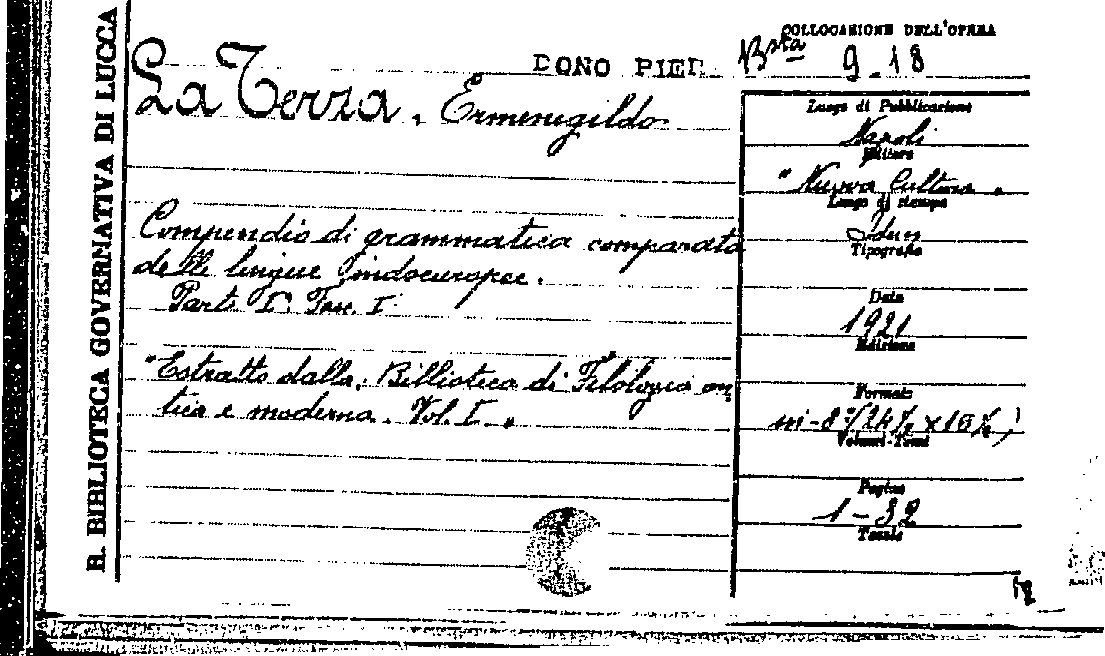 R. BIBLIOTECA GOVERNATIVA DI LUCCA
COLLOCAZIONE DELL'OPERA
DONO PIER. Bsta 9-18
La Terza, Ermenegildo
Compendio di grammatica comparata
delle lingue indoeuropee.
Parte I. Fasc. I.
"Estratto dalla: Billioteca di Filologia an
tica e moderna. Vol. I. "
Luogo di Pubblicazione
Napoli
Editore
"Nuova Cultura"
Luogo di stampa
Idem
Tipografia
Data
1921
Edizione
Formato
in-8°
Volumi-Tomi
Pagine
1-32
Tavole